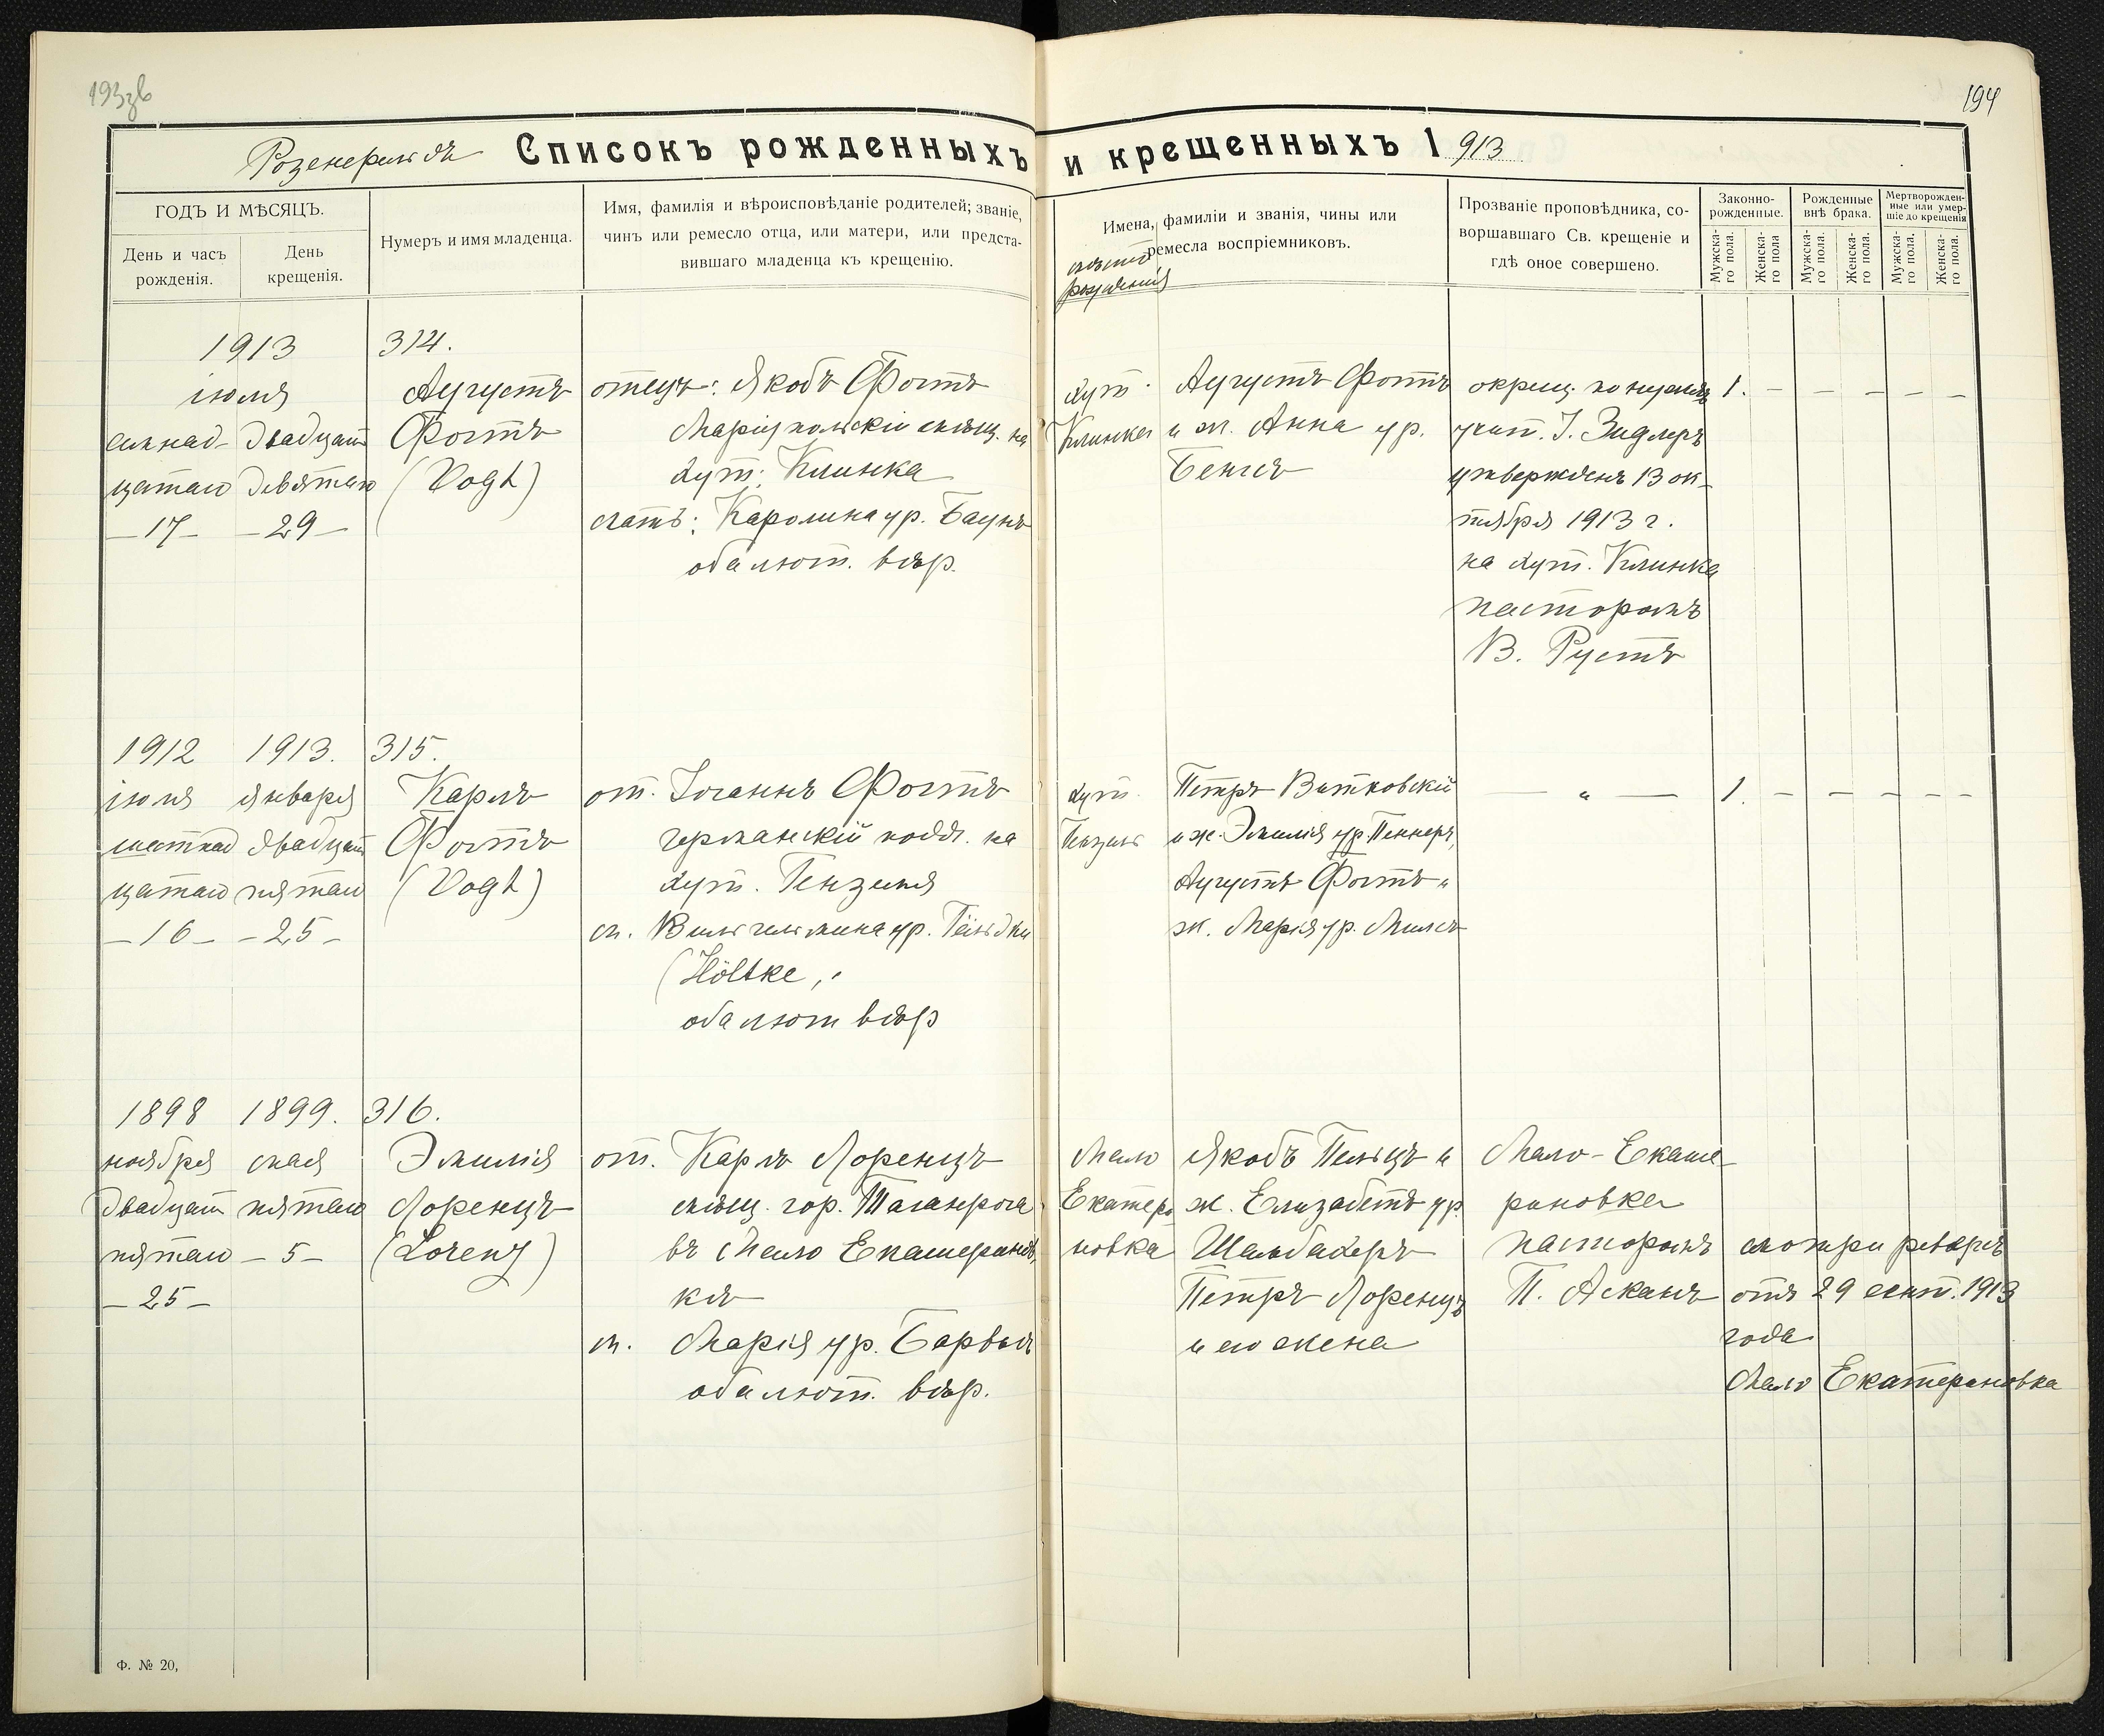 193зв
194
Розенфельдъ Списокъ рожденныхъ и крещенныхъ 1913
ГОДЪ И МѢСЯЦЪ.
День и часъ рожденія.
День крещенія.
Нумеръ и имя младенца.
Имя, фамилія и вѣроисповѣданіе родителей; званіе,
чинъ или ремесло отца, или матери, или предста-
вившаго младенца къ крещенію.
Имена, фамиліи и званія, чины или
ремесла воспріемниковъ.
мѣсто
рожденія
Прозваніе проповѣдника, со-
воршавшаго Св. крещеніе и
гдѣ оное совершено.
Законно-
рожденные.
Рожденные
внѣ брака.
Мертворожден-
ные или умер-
шіе до крещенія
Мужска-
го пола.
Женска-
го пола
Мужска-
го пола.
Женска-
го пола.
Мужска-
го пола.
Женска-
го пола.
1913
іюля
семнад-
цатаго
—17—
двадцат
девятаго
—29—
314.
Августъ
Фогтъ
(Vogt)
отецъ: Якобъ Фогтъ
Маріупольскій мѣщ. на
хут: Клинка
мать: Каролина ур. Баунъ
оба лют. вѣр.
хут.
Клинка
Августъ Фогтъ
и ж. Анна ур.
окрещ. по нуждѣ
учит. І. Зидлеръ
утвержденъ 13 ок-
тября 1913 г.
на хут. Клинка
пасторомъ
В. Рустъ
1. — — — — —
1912
іюля
шестнад
цатаго
—16—
1913.
января
двадцат
пятаго
—25—
315.
Карлъ
Фогтъ
(Vogt)
от. Іоганнъ Фогтъ
германскій подд. на
хут.
м. Вильгельмина ур.
(Höltke,
оба лют вѣр
хут.
Петръ Витковскій
и ж. Эмилія ур. Пеннеръ,
Августъ Фогтъ и
ж. Марія ур.
— „ —
1. — — — — —
1898
ноября
двадцат
пятаго
—25—
1899.
мая
пятаго
—5—
316.
Эмилія
Лоренцъ
(Lorenz)
от. Карлъ Лоренцъ
мѣщ. гор. Таганрога
въ Мало Екатеринов,
кѣ
м. Марія ур.
оба лют. вѣр.
Мало
Екатери
новка
Якобъ Пельцъ и
ж. Елизабетъ ур.
Шальбахеръ
Петръ Лоренцъ
и его жена
Мало-Екате
риновка
пасторомъ
П. Асканъ
смотри реверсъ
отъ 29 сент. 1913
года
Мало Екатериновка
Ф. № 20,